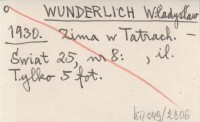 WUNDERLICH Władysław
1930. Zima w Tatrach. —
Świat 25, nr 8: , il.
Tylko 5 fot.